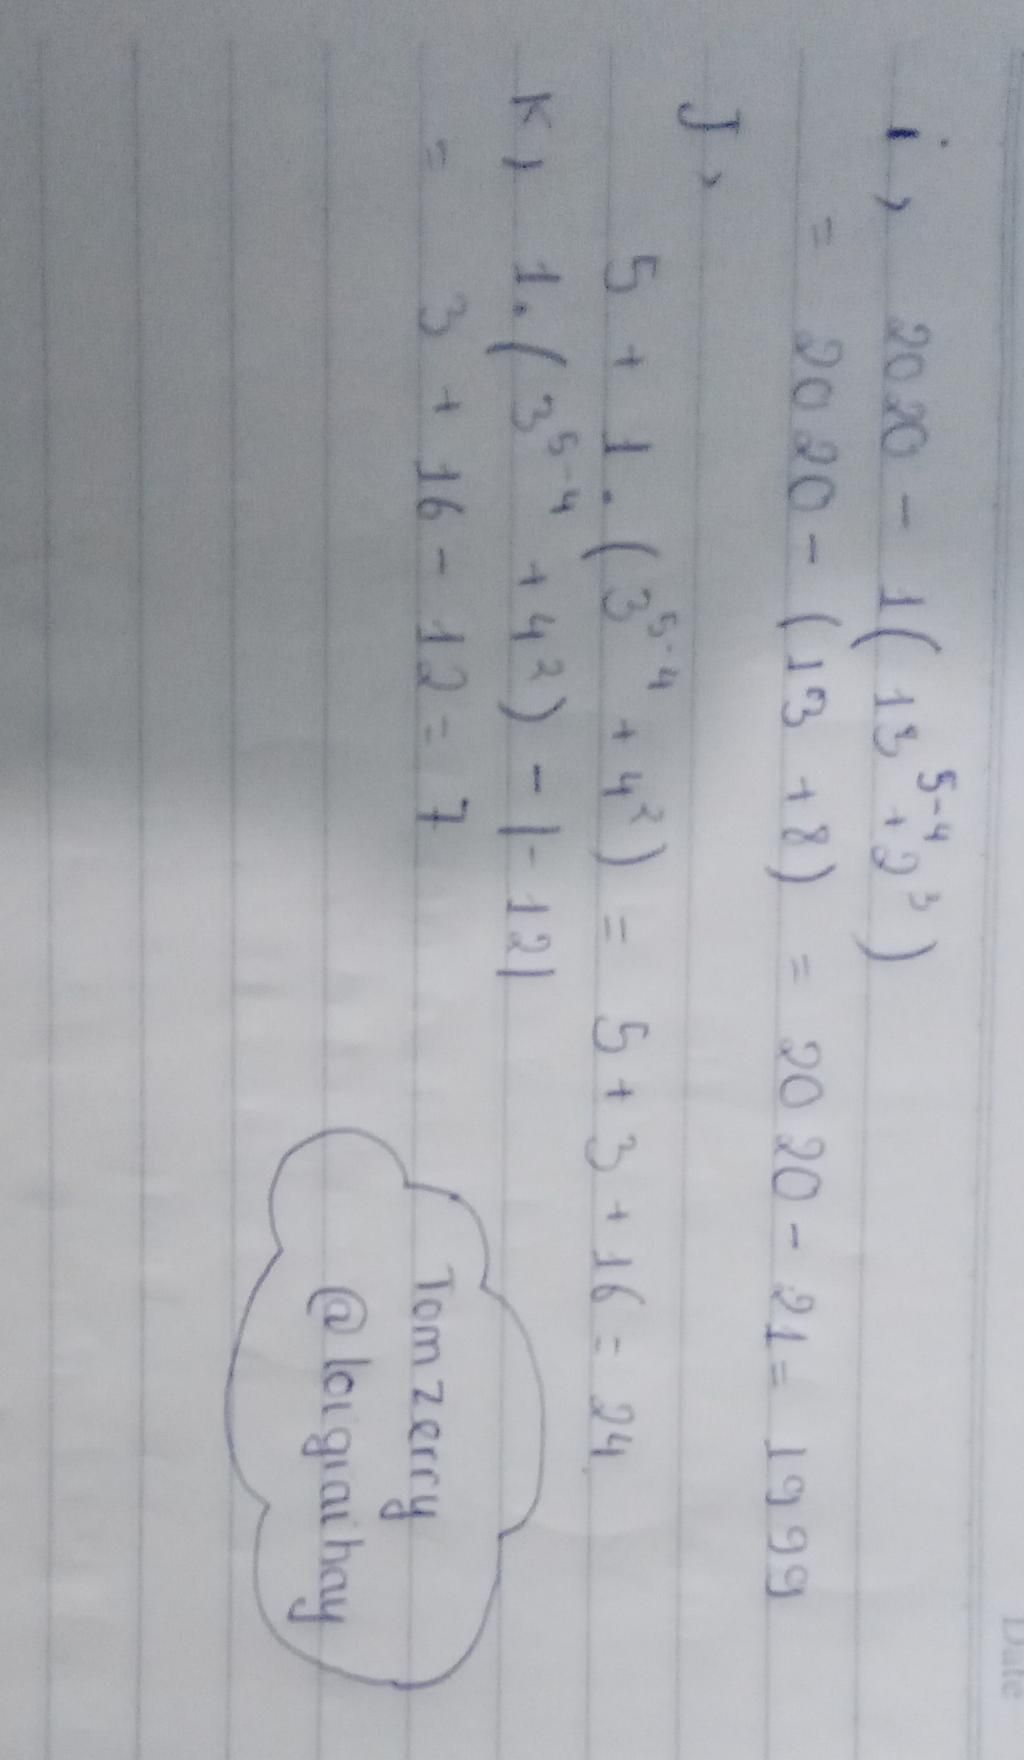 Date
i, 2020 - 1(13⁵⁻⁴ + 2³)
= 2020 - (13 + 8) = 2020 - 21 = 1999
J,
5 + 1 . (3⁵⁻⁴ + 4²) = 5 + 3 + 16 = 24
K, 1. (3⁵⁻⁴ + 4²) - |-12|
= 3 + 16 - 12 = 7
Tomzerry
@loigiaihay